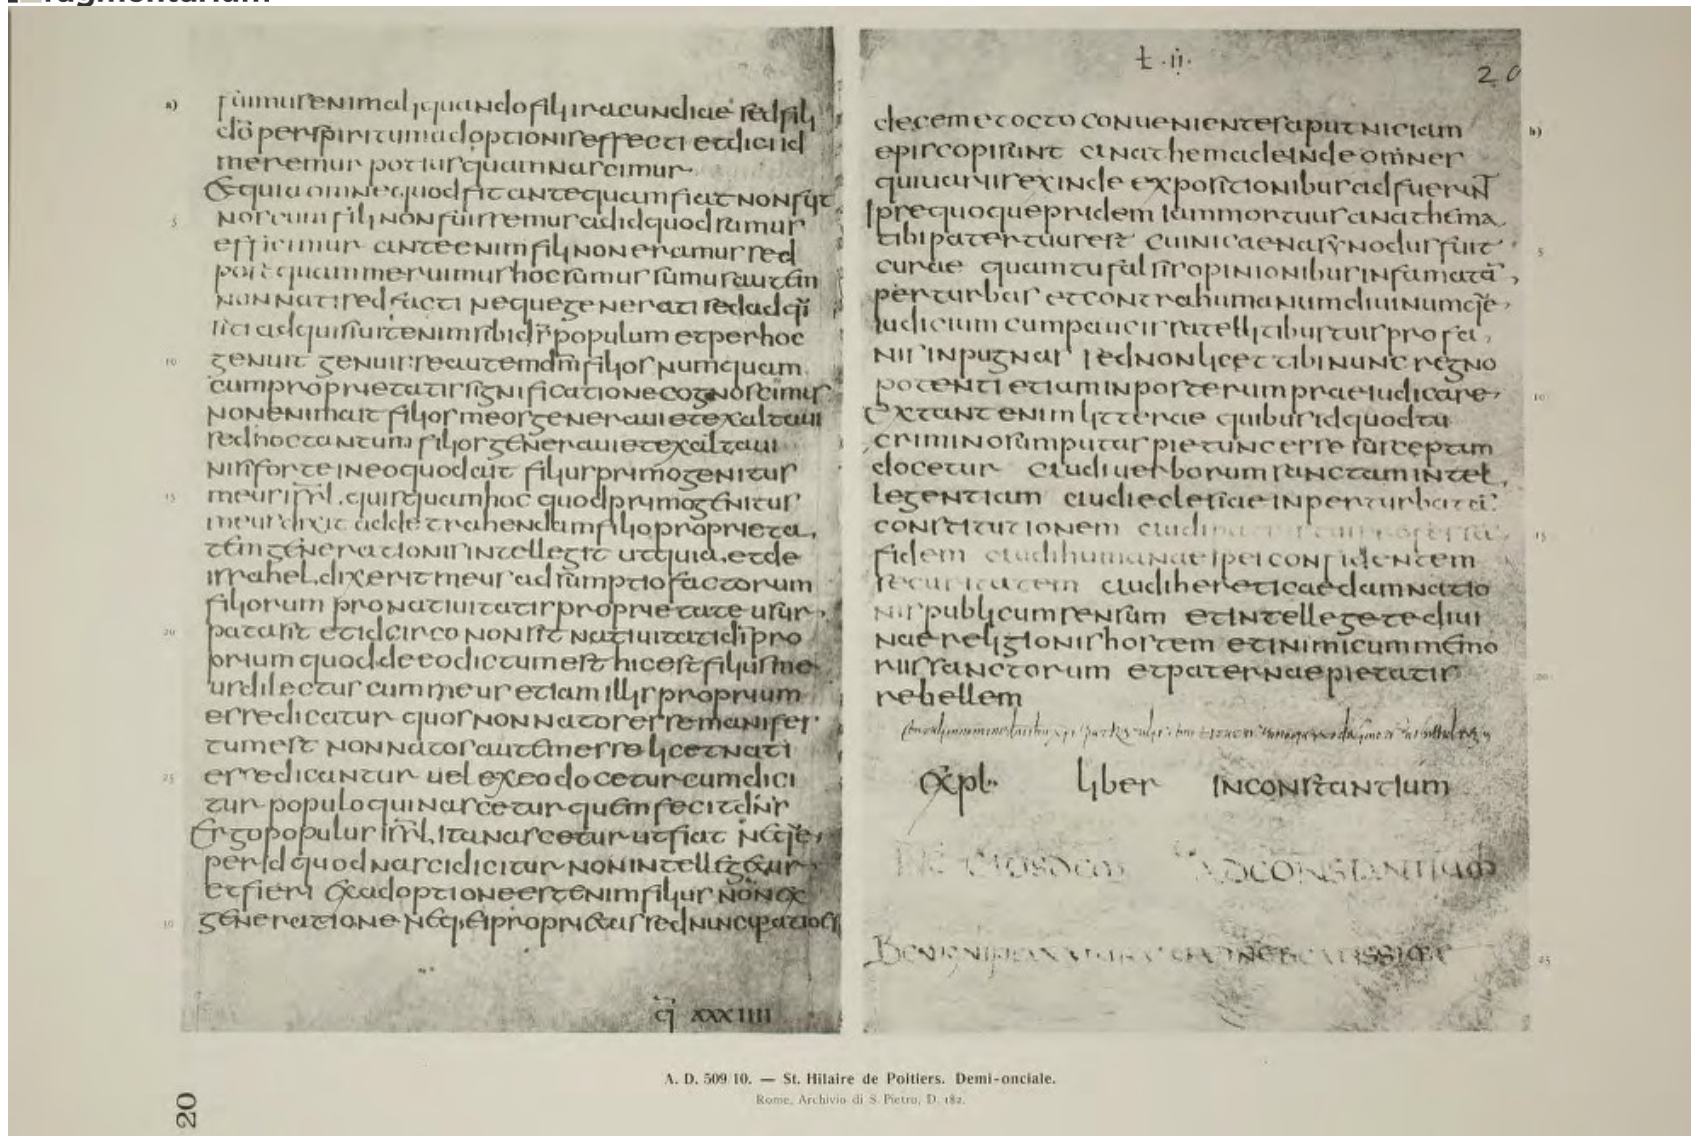 fragmentarium
a)
fuimus enim aliquando filii iracundiae sed filii
dō per spiritum adoptionis effecti et dici id
meremur potius quam nascimur
Et quia omne quod fit antequam fiat non fuit
5
nos cum filii non fuissemus ad id quod sumus
efficimur ante enim filii non eramus sed
postquam meruimus hoc sumus sumus autem
non nati sed facti neque generati sed adqui
siti adquisiuit enim sibi dn̄s populum et per hoc
10
genuit genuisse autem dn̄m filios numquam
cum proprietatis significatione cognoscimus
non enim ait filios meos generaui et exaltaui
sed hoc tantum filios generaui et exaltaui
nisi forte in eo quod ait filius primogenitus
15
meus isrl. quisquam hoc quod primogenitus
meus dixit ad detrahendam filio proprieta
tem generationis intellegit ut quia et de
israhel dixerit meus adsumptio factorum
filiorum pro natiuitatis proprietate usur
20
pata sit et idcirco non sit natiuitati dī pro
prium quod de eo dictum est hic est filius me
us dilectus cum meus etiam illis proprium
esse dicatur quos non natos esse manifes
tum est non natos autem esse licet nati
25
esse dicantur uel ex eo docetur cum dici
tur populo qui nascetur quem fecit dn̄s
Ergo populus isrl. ita nascetur ut fiat neq̄e
per id quod nasci dicitur non intellegetur
et fieri ex adoptione est enim filius non ex
30
generatione neq; ei proprietas sed nuncupatio est
q̄ xxxiiii
t.ii.
20
b)
decem et octo conuenientes aput niciam
episcopi sunt anathema deinde omnes
qui uariis exinde expositionibus adfuerunt
Ipse quoque pridem iam mortuus anathema
5
tibi pater tuus est cui nicaena synodus fuit
curae quam tu falsis opinionibus infamatā
perturbas et contra humanum diuinumq̄e
iudicium cum paucis satellitibus tuis profa
nis inpugnas sed non licet tibi nunc regno
10
potenti etiam in posterum praeiudicare
Extant enim litterae quibus id quod tu
criminosum putas pie tunc esse susceptum
docetur Audi uerborum sanctam intel
legentiam audi eclesiae inperturbatā
15
constitutionem audi
fidem audi humanae spei confidentem
securitatem audi hereticae damnatio
nis publicum sensum et intellege te diui
nae religionis hostem et inimicum memo
20
riis sanctorum et paternae pietatis
rebellem
Expl· liber inconstantium
CONSTANTIUM
25
20
A. D. 509/10. — St. Hilaire de Poitiers. Demi-onciale.
Rome, Archivio di S. Pietro, D. 182.